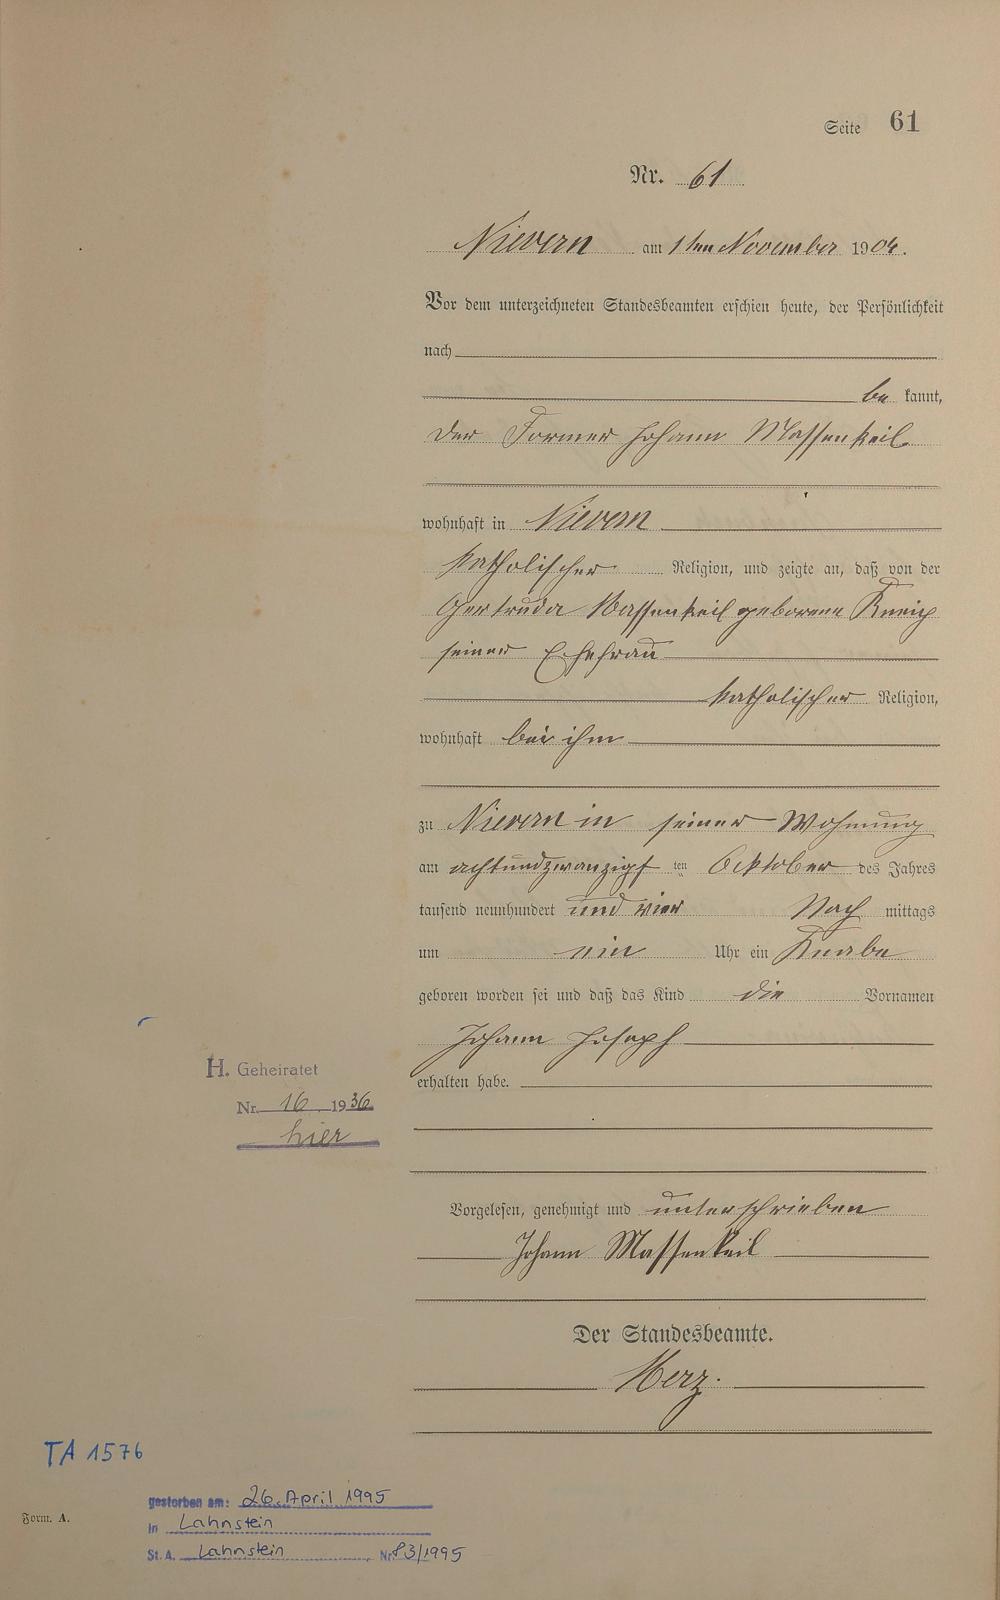 Seite 61
Nr. 61
Nievern am 1ten November 1904.
Vor dem unterzeichneten Standesbeamten erschien heute, der Persönlichkeit
nach
be kannt,
der Former Johann Massenkeil
wohnhaft in Nievern
katholischer Religion, und zeigte an, daß von der
Gertruda Massenkeil geborene
seiner Ehefrau
katholischer Religion,
wohnhaft bei ihm
zu Nievern in seiner Wohnung
am achtundzwanzigsten Oktober des Jahres
tausend neunhundert und vier Nach mittags
um ein Uhr ein Knabe
geboren worden sei und daß das Kind die Vornamen
Johann Joseph
erhalten habe.
H. Geheiratet
Nr. 16 1936
hier
Vorgelesen, genehmigt und unterschrieben
Johann Massenkeil
Der Standesbeamte.
Merz.
TA 1576
gestorben am: 26. April 1995
in Lahnstein
St. A. Lahnstein Nr. 83/1995
Form. A.